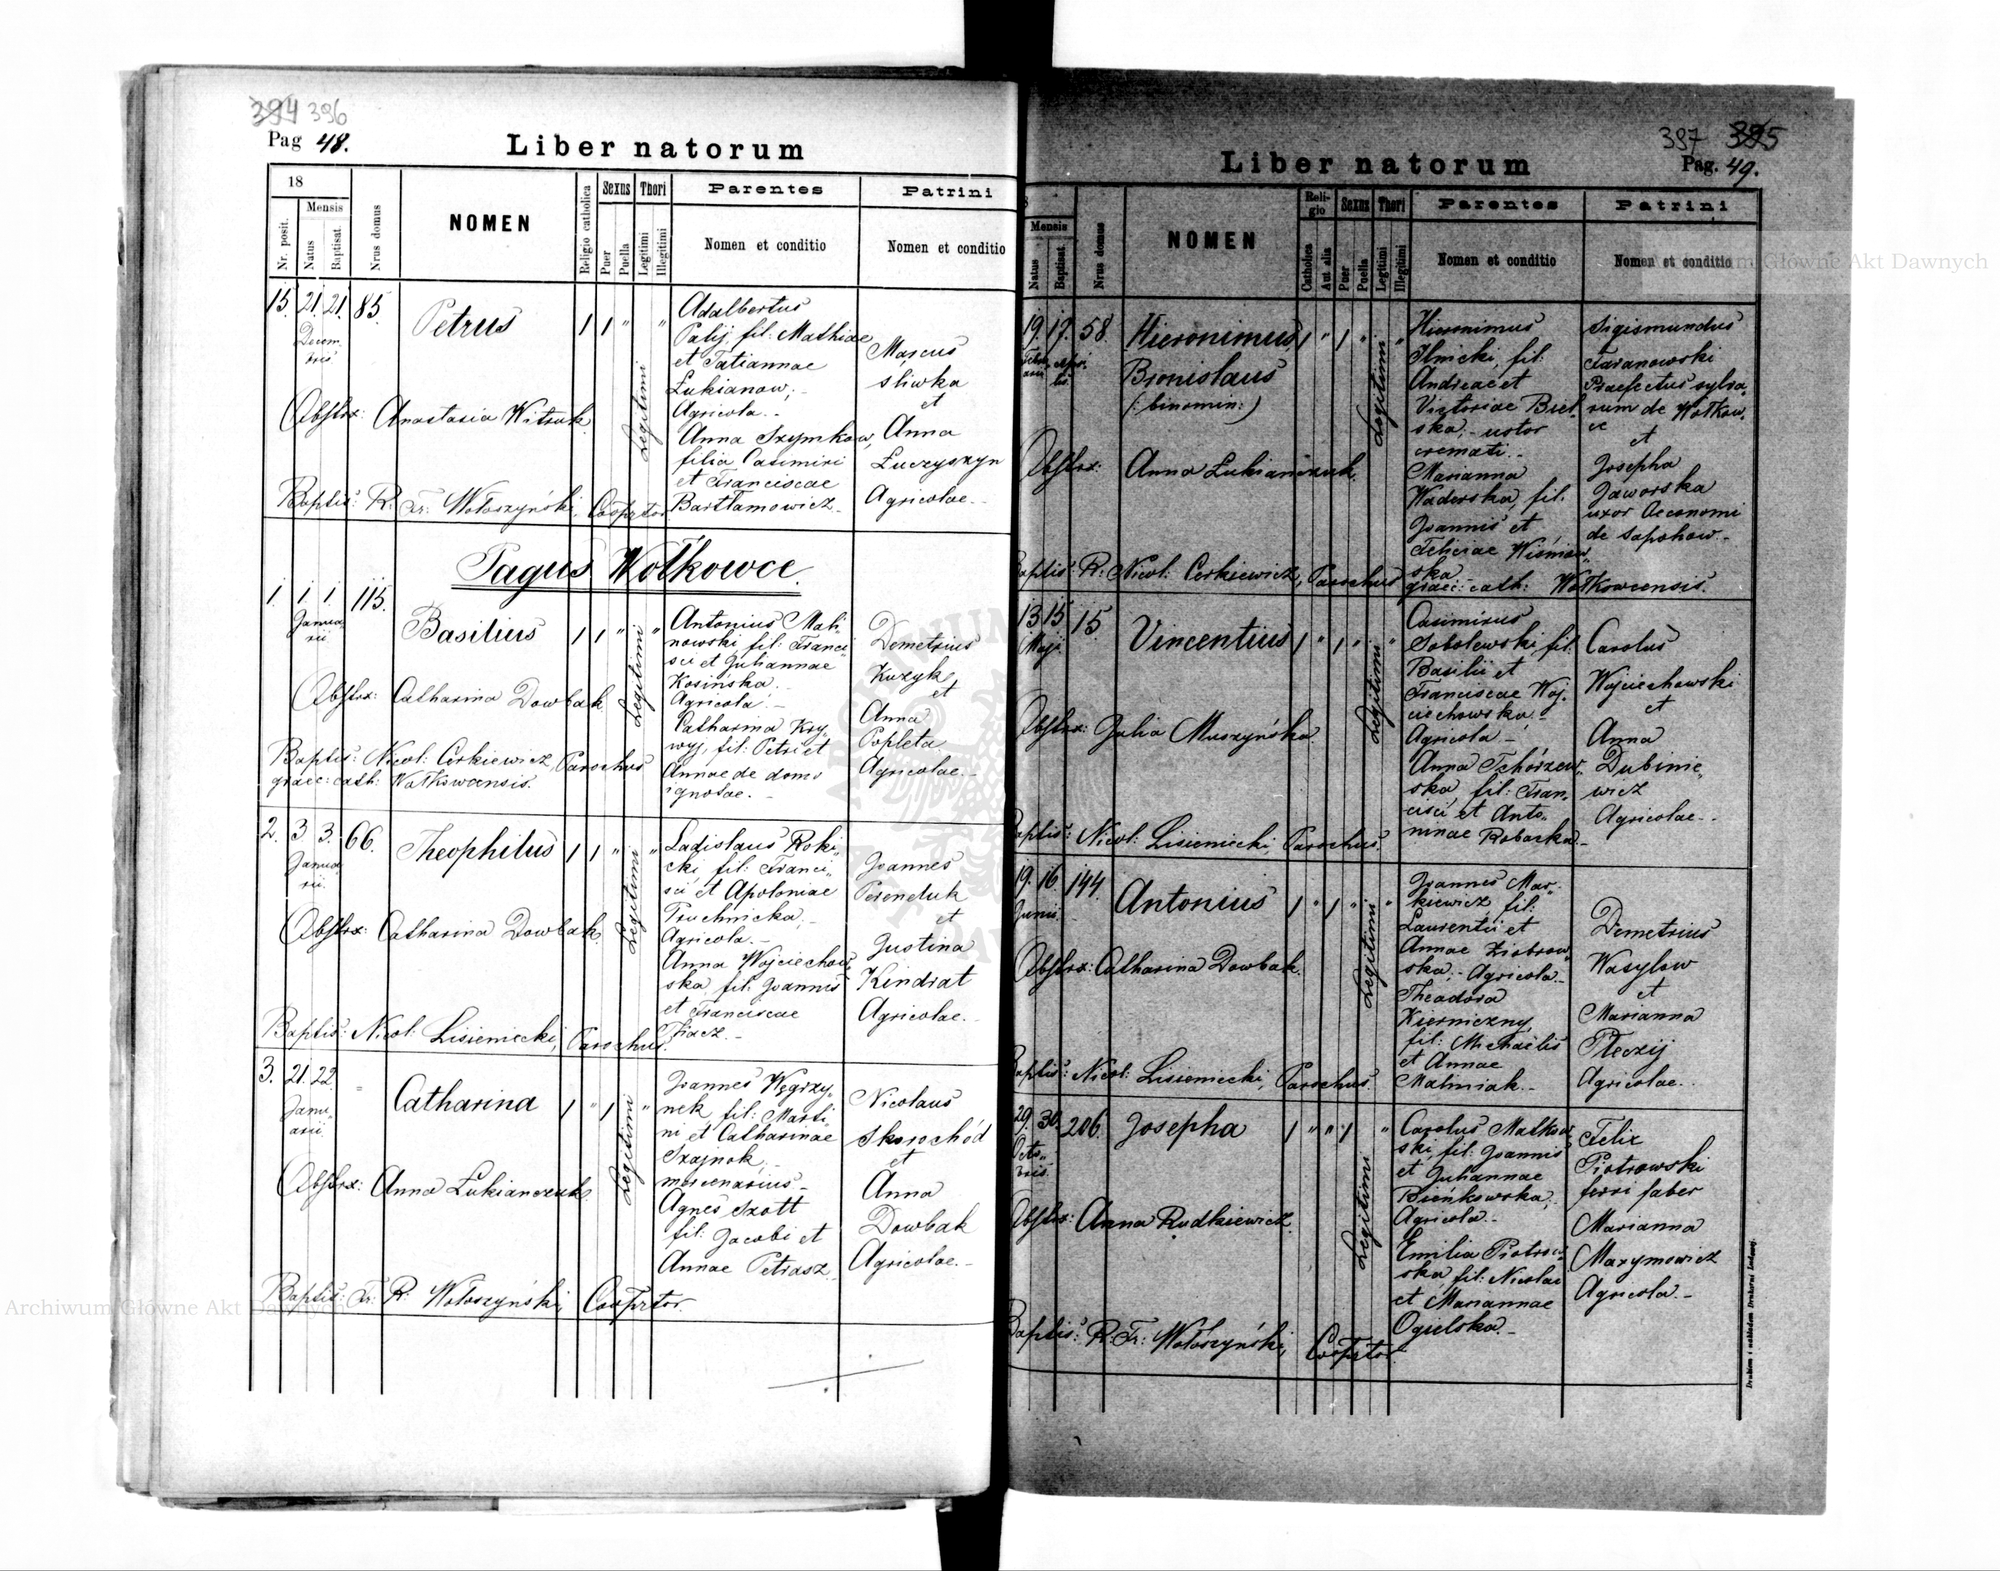 394 396
Pag 48.
Liber natorum
18
Nr. posit.
Mensis
Natus
Baptisat.
Nrus domus
NOMEN
Religio catholica
Sexus
Puer
Puella
Thori
Legitimi
Illegitimi
Parentes
Nomen et conditio
Patrini
Nomen et conditio
15. 21. 21. 85.
Decem
bris
Petrus
1 1 " "
Legitimi
Adalbertus
Patij, fil: Mathiae
et Tatiannae
Łukianow; -
Agricola. -
Anna Szymkow,
filia Casimiri
et Franciscae
Bartłamowicz -
Marcus
Sliwka
et
Anna
Łuczyszyn
Agricolae. -
Obstrx: Anastasia Witruk.
Baptis: R. Fr: Wołoszyński, Cooprtor.
Pagus Wołkowce.
1. 1 1 115.
Janua
rii
Basilius
1 1 " "
Legitimi
Antonius Mali
nowski fil: Franci
sci et Juliannae
Kosińska. -
Agricola. -
Catharina Kry
wyj, fil: Petri et
Annae de domo
ignotae. -
Demetrius
Kuzyk
et
Anna
Popleta
Agricolae. -
Obstrx: Catharina Dowbak
Baptis: Nicol: Cerkiewicz, Parochus
graec: cath: Wołkowcensis.
2. 3 3. 66.
Janua
rii.
Theophilus
1 1 " "
Legitimi
Ladislaus Roki
cki, fil: Franci
sci et Apoloniae
Truchnicka, -
Agricola. -
Anna Wojciechow
ska, fil: Joannis
et Franciscae
Joannes
Perenduk
et
Justina
Kindrat
Agricolae. -
Obstrx: Catharina Dowbak.
Baptis: Nicol: Lisieniecki, Parochus.
3. 21. 22. "
Janu
arii
Catharina
1 " 1 "
Legitimi
Joannes Węgrzy
nek, fil: Marti
ni et Catharinae
Szajnok, -
mercenarius -
Agnes Szott
fil: Jacobi et
Annae Petrasz.
Nicolaus
Skorochód
et
Anna
Dowbak
Agricolae. -
Obstrx: Anna Łukianczuk
Baptis: Fr: R. Wołoszyński, Cooprtor.
397 395
Pag. 49.
Liber natorum
Mensis
Natus
Baptisat.
Nrus domus
NOMEN
Reli-
gio
Catholica
Aut alia
Sexus
Puer
Puella
Thori
Legitimi
Illegitimi
Parentes
Nomen et conditio
Patrini
Nomen et conditio
19. 17. 58.
Hieronimus
Bronislaus
(: binomin: )
1 " 1 " "
Legitimi
Hieronimus
Ilnicki, fil:
Andreae et
Victoriae Biel
ska, - ustor
cremati. -
Marianna
Waderska, fil.
Joannis et
Feliciae Wiśniow
ska
Sigismundus
Taranowski
Praefectus sylva
rum de Wołkow
ce
et
Josepha
Jaworska
uxor Oeconomi
de Sapohow -
Obstrx: Anna Łukianczuk.
Baptis: R: Nicol: Cerkiewicz, Parochus graec: cath: Wołkowcensis.
13 15 15.
Maji
Vincentius
1 " 1 " "
Legitimi
Casimirus
Sobolewski, fil.
Basilii et
Franciscae Woj
ciechowska -
Agricola -
Anna Tchórzew
ska, fil: Fran
cisci et Anto
ninae Robacka -
Carolus
Wojciechowski
et
Anna
Dubinie
wicz
Agricolae. -
Obstrx: Julia Muszyńska.
Baptis: Nicol: Lisieniecki, Parochus.
19. 16 144.
Junii
Antonius
1 " 1 " "
Legitimi
Joannes Mar
kiewicz, fil:
Laurentii et
Annae Ziobrow
ska, - Agricola. -
Theodora
Kierniczny,
fil: Michaëlis
et Annae
Maliniak. -
Demetrius
Wasylow
et
Marianna
Pleczij
Agricolae. -
Obstrx: Catharina Dowbak.
Baptis: Nicol: Lisieniecki, Parochus.
29. 30. 206.
Octo
bris.
Josepha
1 " " 1 "
Legitimi
Carolus Malkow
ski, fil: Joannis
et Juliannae
Bieńkowska,
Agricola. -
Emilia Piotrow
ska, fil: Nicolai
et Mariannae
Ogielska. -
Felix
Piotrowski
ferri faber
Marianna
Maxymowicz
Agricola. -
Obstrx: Anna Rudkiewicz.
Baptis: R. Fr: Wołoszyński, Cooprtor.
Archiwum Główne Akt Dawnych